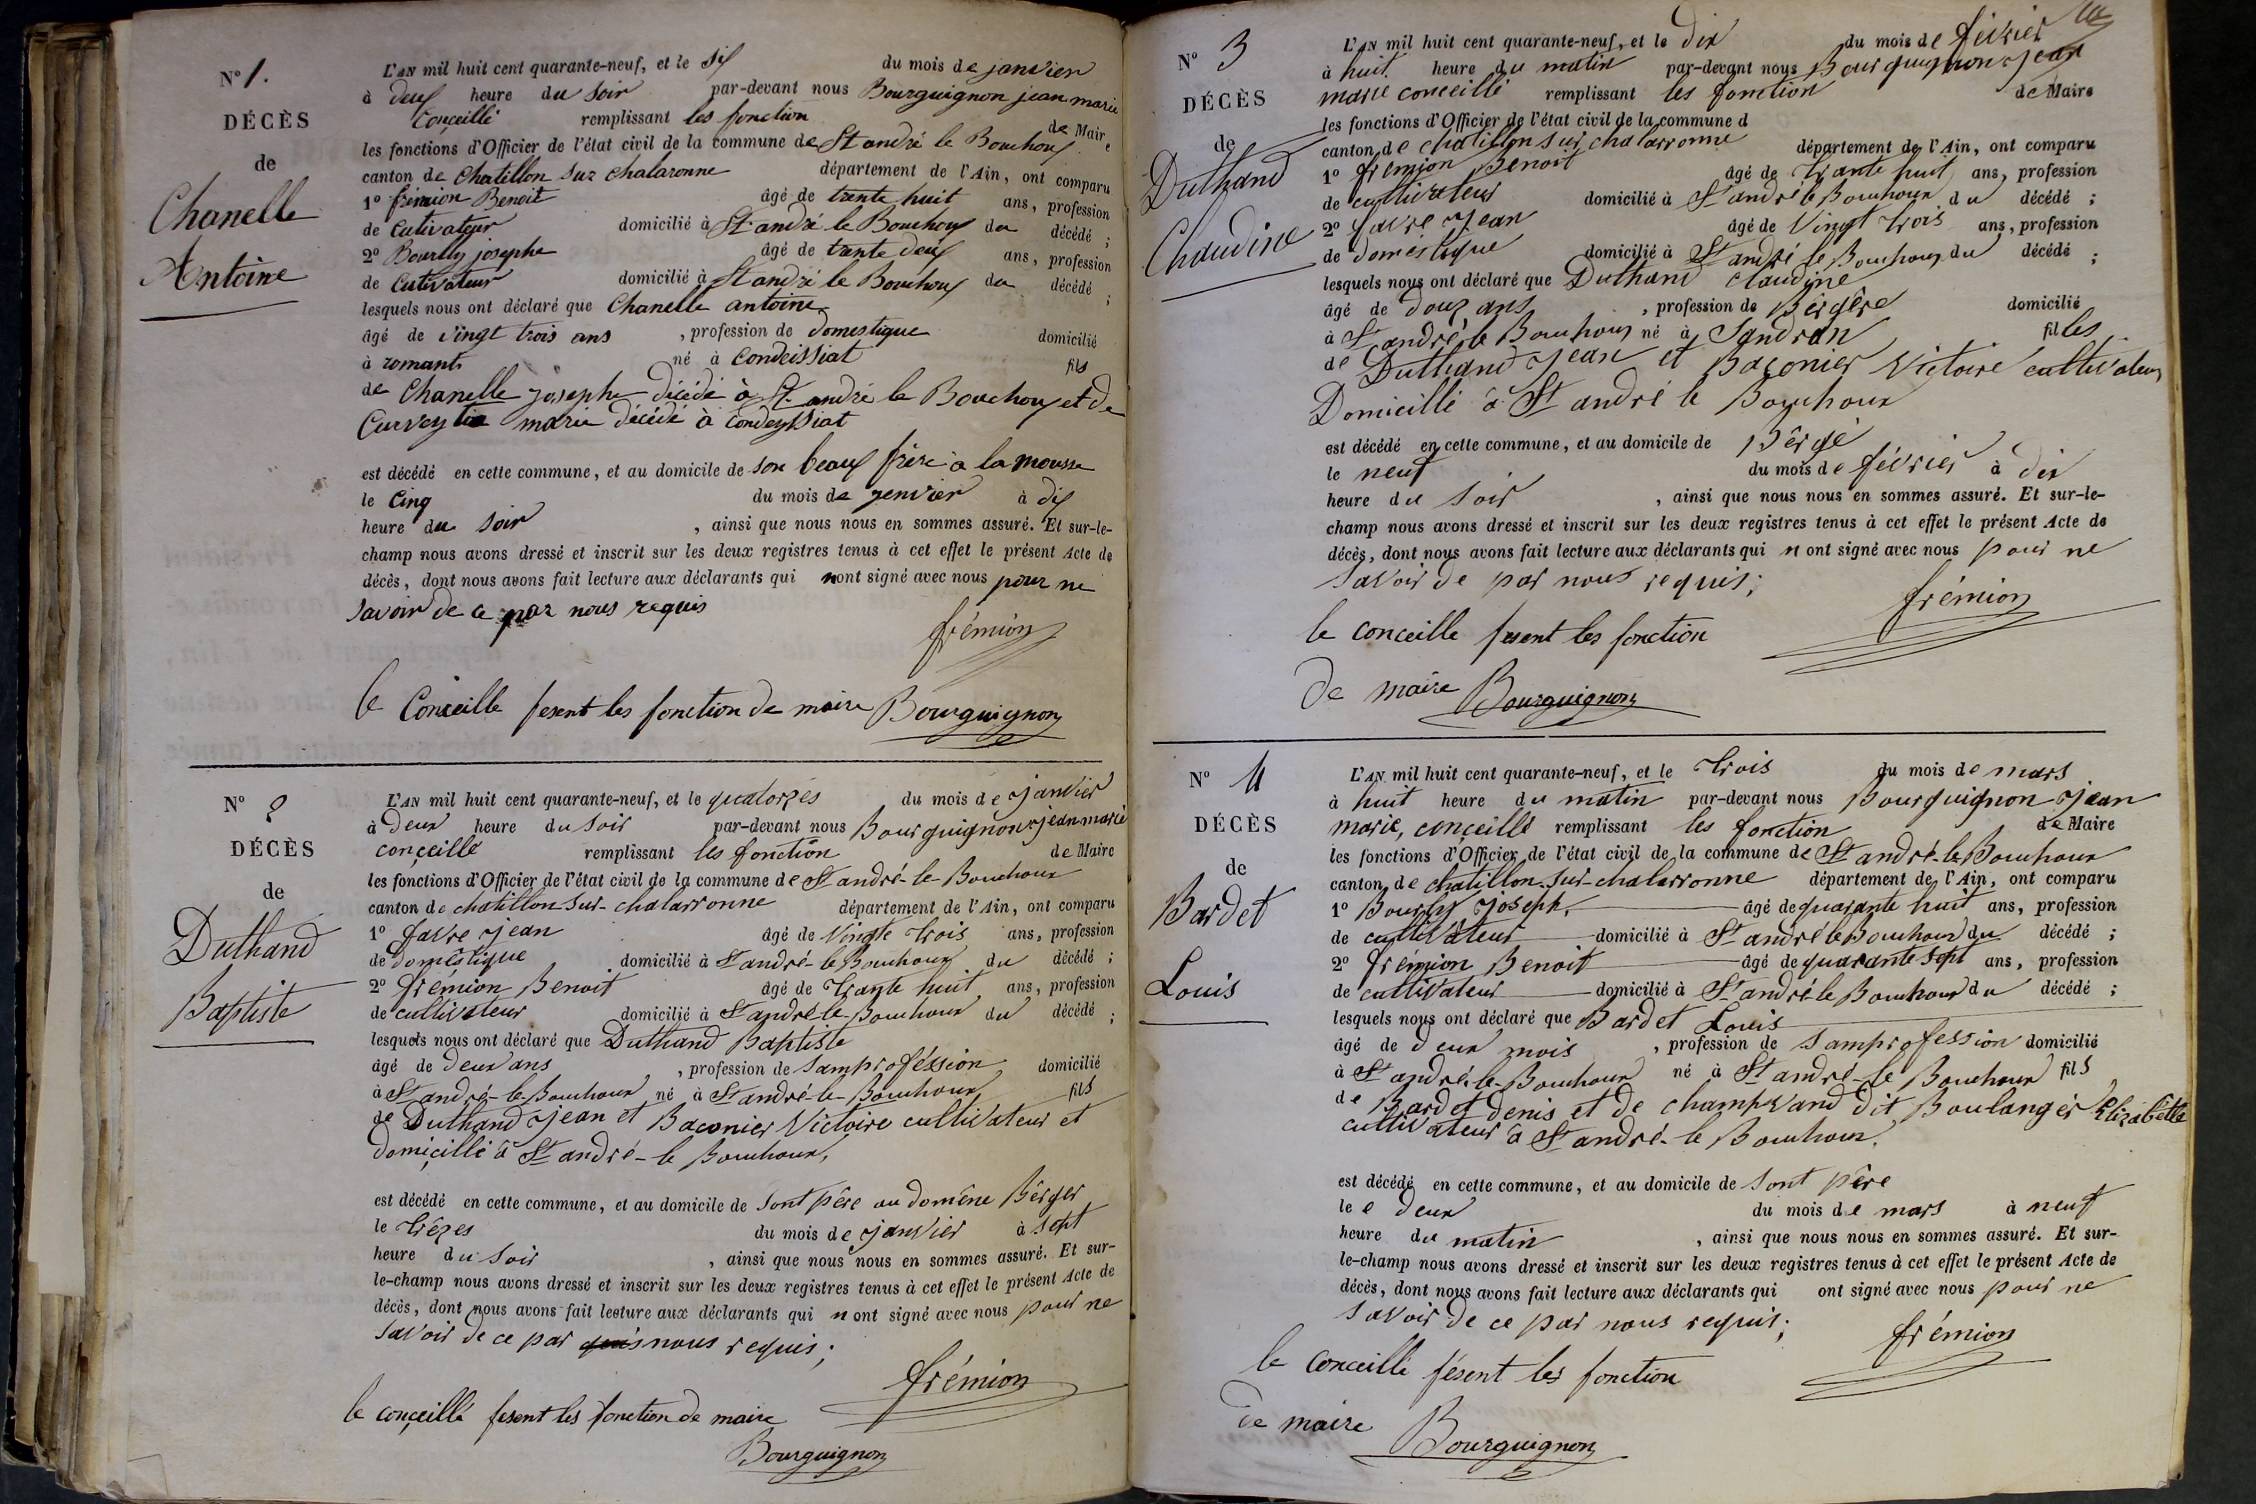 N° 1.
DÉCÈS
de
Chanelle
Antoine
L'AN mil huit cent quarante-neuf, et le six du mois de janvien
à deux heure du soir par-devant nous Bourguignon jean marie
Conçeillé remplissant les fonction de Maire
les fonctions d'Officier de l'état civil de la commune de St andré le Bouchoux
canton de Chatillon sur chalaronne département de l'Ain, ont comparu
1° frémion Benoit âgé de trente huit ans, profession
de Cutivateur domicilié à St andré le Bouchoux du décédé ;
2° Bourlly josephe âgé de trante deux ans, profession
de Cutivateur domicilié à St andré le Bouchoux du décédé ;
lesquels nous ont déclaré que Chanelle antoine
âgé de vingt trois ans , profession de domestique domicilié
à romants né à Condeissiat fils
de Chanelle josephe décédé à St andré le Bouchoux et de
Curveytia marie décédé à condeyssiat
est décédé en cette commune, et au domicile de son beaux frère à la mousse
le Cinq du mois de jenvier à dix
heure du soir , ainsi que nous nous en sommes assuré. Et sur-le-
champ nous avons dressé et inscrit sur les deux registres tenus à cet effet le présent Acte de
décès, dont nous avons fait lecture aux déclarants qui n ont signé avec nous pour ne
savoir de ce par nous requis
frémion
le Conceille fesent les fonction de maire Bourguignon
N° 2
DÉCÈS
de
Duthand
Baptiste
L'AN mil huit cent quarante-neuf, et le quatorzes du mois de janvier
à deux heure du soir par-devant nous Bourguignon jean marie
conçeillé remplissant les fonction de Maire
les fonctions d'Officier de l'état civil de la commune de St andré-le-Bouchoux
canton de chatillon-sur-chalarronne département de l'Ain, ont comparu
1° favre jean âgé de Vingte trois ans, profession
de doméstique domicilié à St andré-le-Bouchoux du décédé ;
2° frémion Benoit âgé de trante huit ans, profession
de cultivateur domicilié à St andré-le-Bouchoux du décédé ;
lesquels nous ont déclaré que Duthand Baptiste
âgé de deux ans , profession de samproféssion domicilié
à St andré-le-Bouchoux né à St andré-le-Bouchoux fils
de Duthand jean et Baconier Victoire cultivateur et
domicillé à St andré-le Bouchoux,
est décédé en cette commune, et au domicile de sont père au domêne Bérger
le trèzes du mois de janvier à sept
heure du soir , ainsi que nous nous en sommes assuré. Et sur-
le-champ nous avons dressé et inscrit sur les deux registres tenus à cet effet le présent Acte de
décès, dont nous avons fait lecture aux déclarants qui n ont signé avec nous pour ne
savoir de ce par nous requis ;
frémion
le conçeillé fesent les fonction de maire
Bourguignon
N° 3
DÉCÈS
de
Duthand
Claudine
L'AN mil huit cent quarante-neuf, et le dix du mois de février
à huit heure du matin par-devant nous Bourguignon jean
marie conceillé remplissant les fonction de Maire
les fonctions d'Officier de l'état civil de la commune d
canton de chatillon sur chalarronne département de l'Ain, ont comparu
1° fremion Benoit âgé de trante huit ans, profession
de cultivateur domicilié à St andré le Bouchoux du décédé ;
2° favre jean âgé de Vingt trois ans, profession
de doméstique domicilié à St andré le Bouchoux du décédé ;
lesquels nous ont déclaré que Duthand claudine
âgé de douz ans , profession de Bérgère domicilié
à St andré le Bouchoux né à Sandran filles
de Duthand jean et Baconier Victoire cultivateur
Domicillé à St andré le Bouchoux
est décédé en cette commune, et au domicile de Bérgé
le neuf du mois de février à dix
heure du soir , ainsi que nous nous en sommes assuré. Et sur-le-
champ nous avons dressé et inscrit sur les deux registres tenus à cet effet le présent Acte de
décès, dont nous avons fait lecture aux déclarants qui n ont signé avec nous pour ne
savoir de par nous requis ;
frémion
le conceille fesent les fonction
de maire Bourguignon
N° 4
DÉCÈS
de
Bardet
Louis
L'AN mil huit cent quarante-neuf, et le trois du mois de mars
à huit heure du matin par-devant nous Bourguignon jean
marie, conçeillé remplissant les fonction de Maire
les fonctions d'Officier de l'état civil de la commune de St andré-le-Bouchoux
canton de chatillon-sur-chalarronne département de l'Ain, ont comparu
1° Bourlly joseph. âgé de quarante huit ans, profession
de cultivateur domicilié à St andré le Bouchoux du décédé ;
2° frémion Benoit âgé de quarante sept ans, profession
de cultivateur domicilié à St andré le Bouchoux du décédé ;
lesquels nous ont déclaré que Bardet Louis
âgé de deux mois , profession de samprofession domicilié
à St andré-le-Bouchoux né à St andré-le Bouchoux fils
de Bardet denis et de champvand dit Boulanger Elizabette
cultivateur à St andré-le Bouchoux.
est décédé en cette commune, et au domicile de sont père
le e deux du mois de mars à neuf
heure du matin , ainsi que nous nous en sommes assuré. Et sur-
le-champ nous avons dressé et inscrit sur les deux registres tenus à cet effet le présent Acte de
décès, dont nous avons fait lecture aux déclarants qui ont signé avec nous pour ne
savoir de ce par nous requis ;
frémion
le conceillé fésent les fonction
de maire
Bourguignon